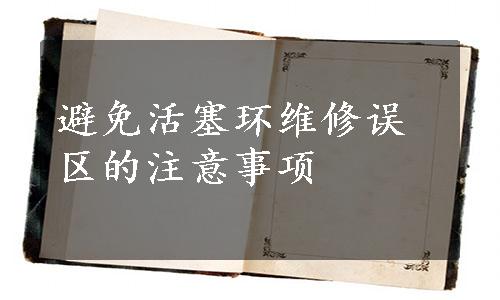 避免活塞环维修误
区的注意事项